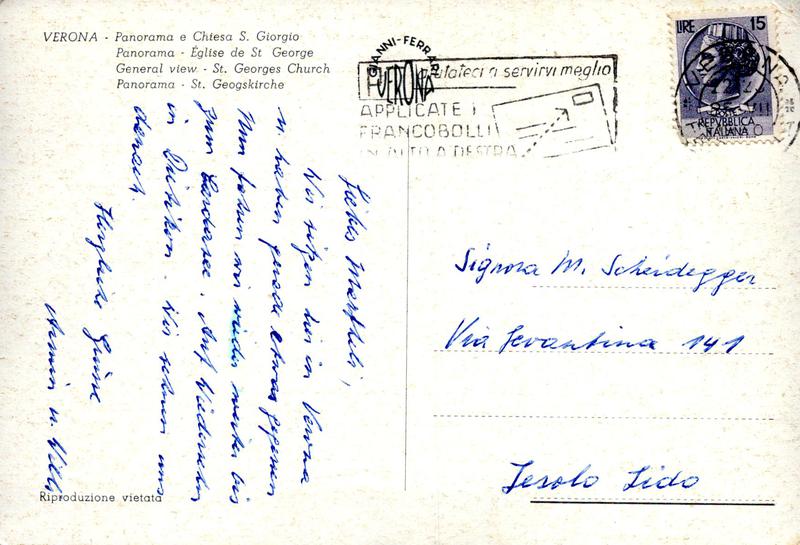 VERONA - Panorama e Chiesa S. Giorgio
Panorama - Église de St George
General view - St. Georges Church
Panorama - St. Geogskirche
GIANNI-FERRARI
VERONA
aiutateci a servirvi meglio
APPLICATE I
FRANCOBOLLI
IN ALTO A DESTRA
LIRE 15
POSTE
REPVBBLICA
ITALIANA
Liebes Martheli,
Wir sitzen hier in Verona
u. haben gerade etwas gegessen
Nun fahren wir wieder weiter bis
zum Gardasee. Auf Wiedersehen
in Dietikon. Wir sehnen uns
danach.
Herzliche Grüsse
Armin u. Willi
Signora M. Scheidegger
Via Levantina 141
Jesolo Lido
Riproduzione vietata